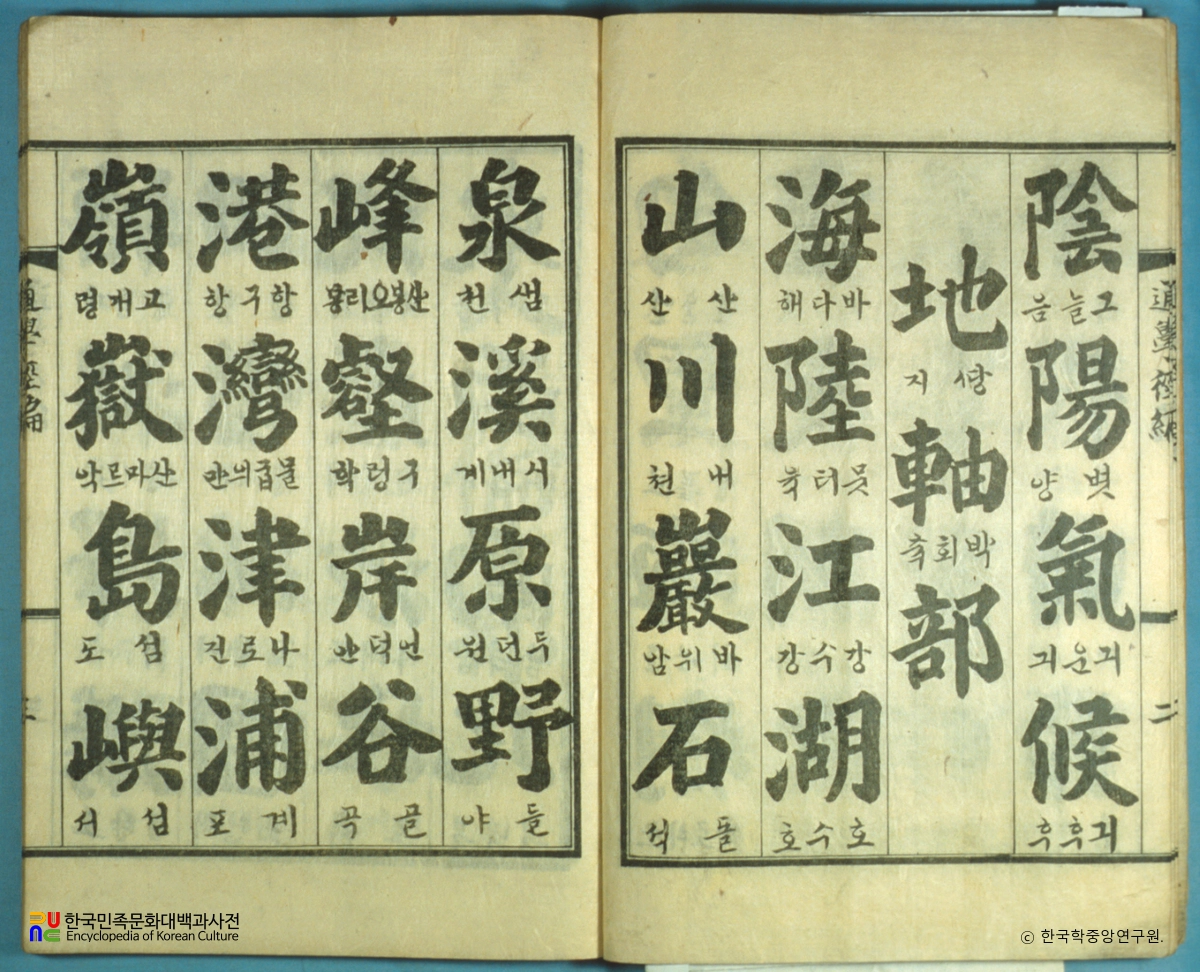 通學徑編 二
陰 그늘 음 陽 볏 양 氣 긔운 긔 候 긔후 후
地 ᄯᅡᆼ 지 軸 박회 축 部
海 바다 해 陸 뭇터 육 江 강수 강 湖 호수 호
山 산 산 川 내 천 巖 바위 암 石 돌 석
泉 샘 천 溪 시내 계 原 두던 원 野 들 야
峰 산봉오리 봉 壑 구렁 학 岸 언덕 안 谷 골 곡
港 항구 항 灣 물굽의 만 津 나로 진 浦 개 포
嶺 고개 령 嶽 산마르 악 島 섬 도 嶼 섬 서
한국민족문화대백과사전
Encyclopedia of Korean Culture
© 한국학중앙연구원.